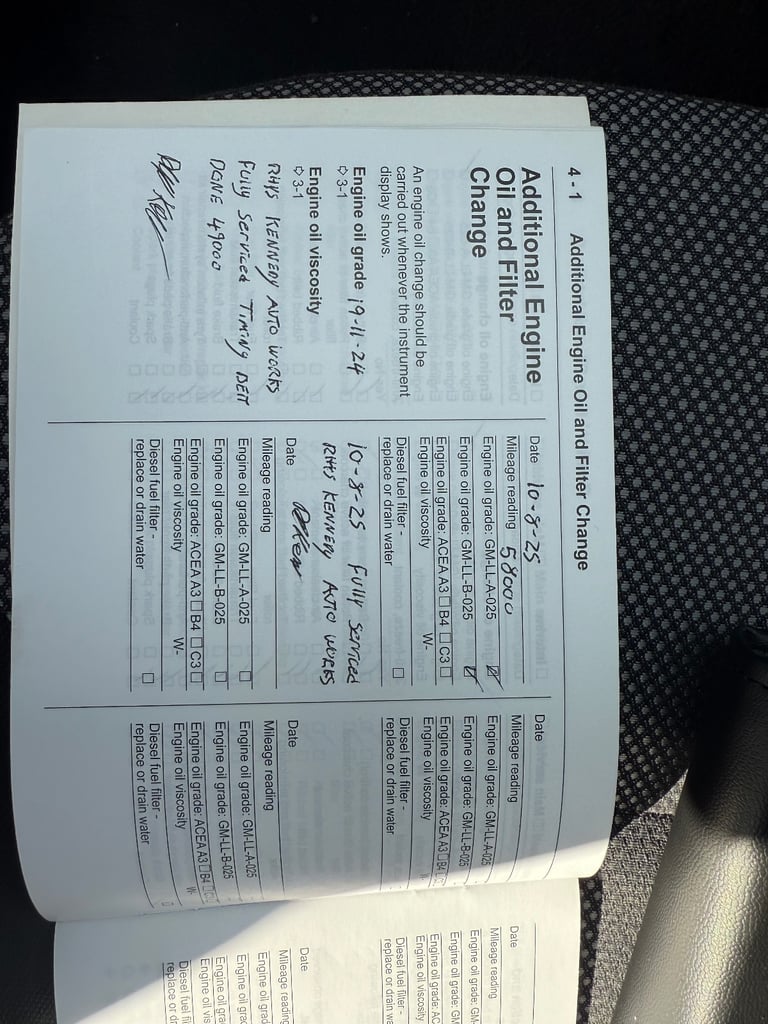 4 - 1 Additional Engine Oil and Filter Change
Additional Engine
Oil and Filter
Change
An engine oil change should be
carried out whenever the instrument
display shows.
Engine oil grade 19-11-24
⇨ 3-1
Engine oil viscosity
⇨ 3-1
RHYS KENNERY AUTO WORKS
FULLY SERVICED TIMING BELT
DONE 49000
Date 10-8-25
Mileage reading 58000
Engine oil grade: GM-LL-A-025 ☑
Engine oil grade: GM-LL-B-025 ☑
Engine oil grade: ACEA A3 ☐ B4 ☐ C3 ☐
Engine oil viscosity W-
Diesel fuel filter -
replace or drain water ☐
10-8-25 FULLY SERVICED
RHYS KENNERY AUTO WORKS
Date
Mileage reading
Engine oil grade: GM-LL-A-025 ☐
Engine oil grade: GM-LL-B-025 ☐
Engine oil grade: ACEA A3 ☐ B4 ☐ C3 ☐
Engine oil viscosity W-
Diesel fuel filter -
replace or drain water ☐
Date
Mileage reading
Engine oil grade: GM-LL-A-025
Engine oil grade: GM-LL-B-025
Engine oil grade: ACEA A3 ☐ B4 ☐ C
Engine oil viscosity W-
Diesel fuel filter -
replace or drain water
Date
Mileage reading
Engine oil grade: GM-LL-A-025
Engine oil grade: GM-LL-B-025
Engine oil grade: ACEA A3 ☐ B4 ☐ C3
Engine oil viscosity W-
Diesel fuel filter -
replace or drain water ☐
Date
Mileage reading
Engine oil grade: GM
Engine oil grade: GM
Engine oil grade: AC
Engine oil viscosity
Diesel fuel filter -
replace or drain wa
Date
Mileage reading
Engine oil grad
Engine oil gra
Engine oil gra
Engine oil vis
Diesel fuel fi
replace or d